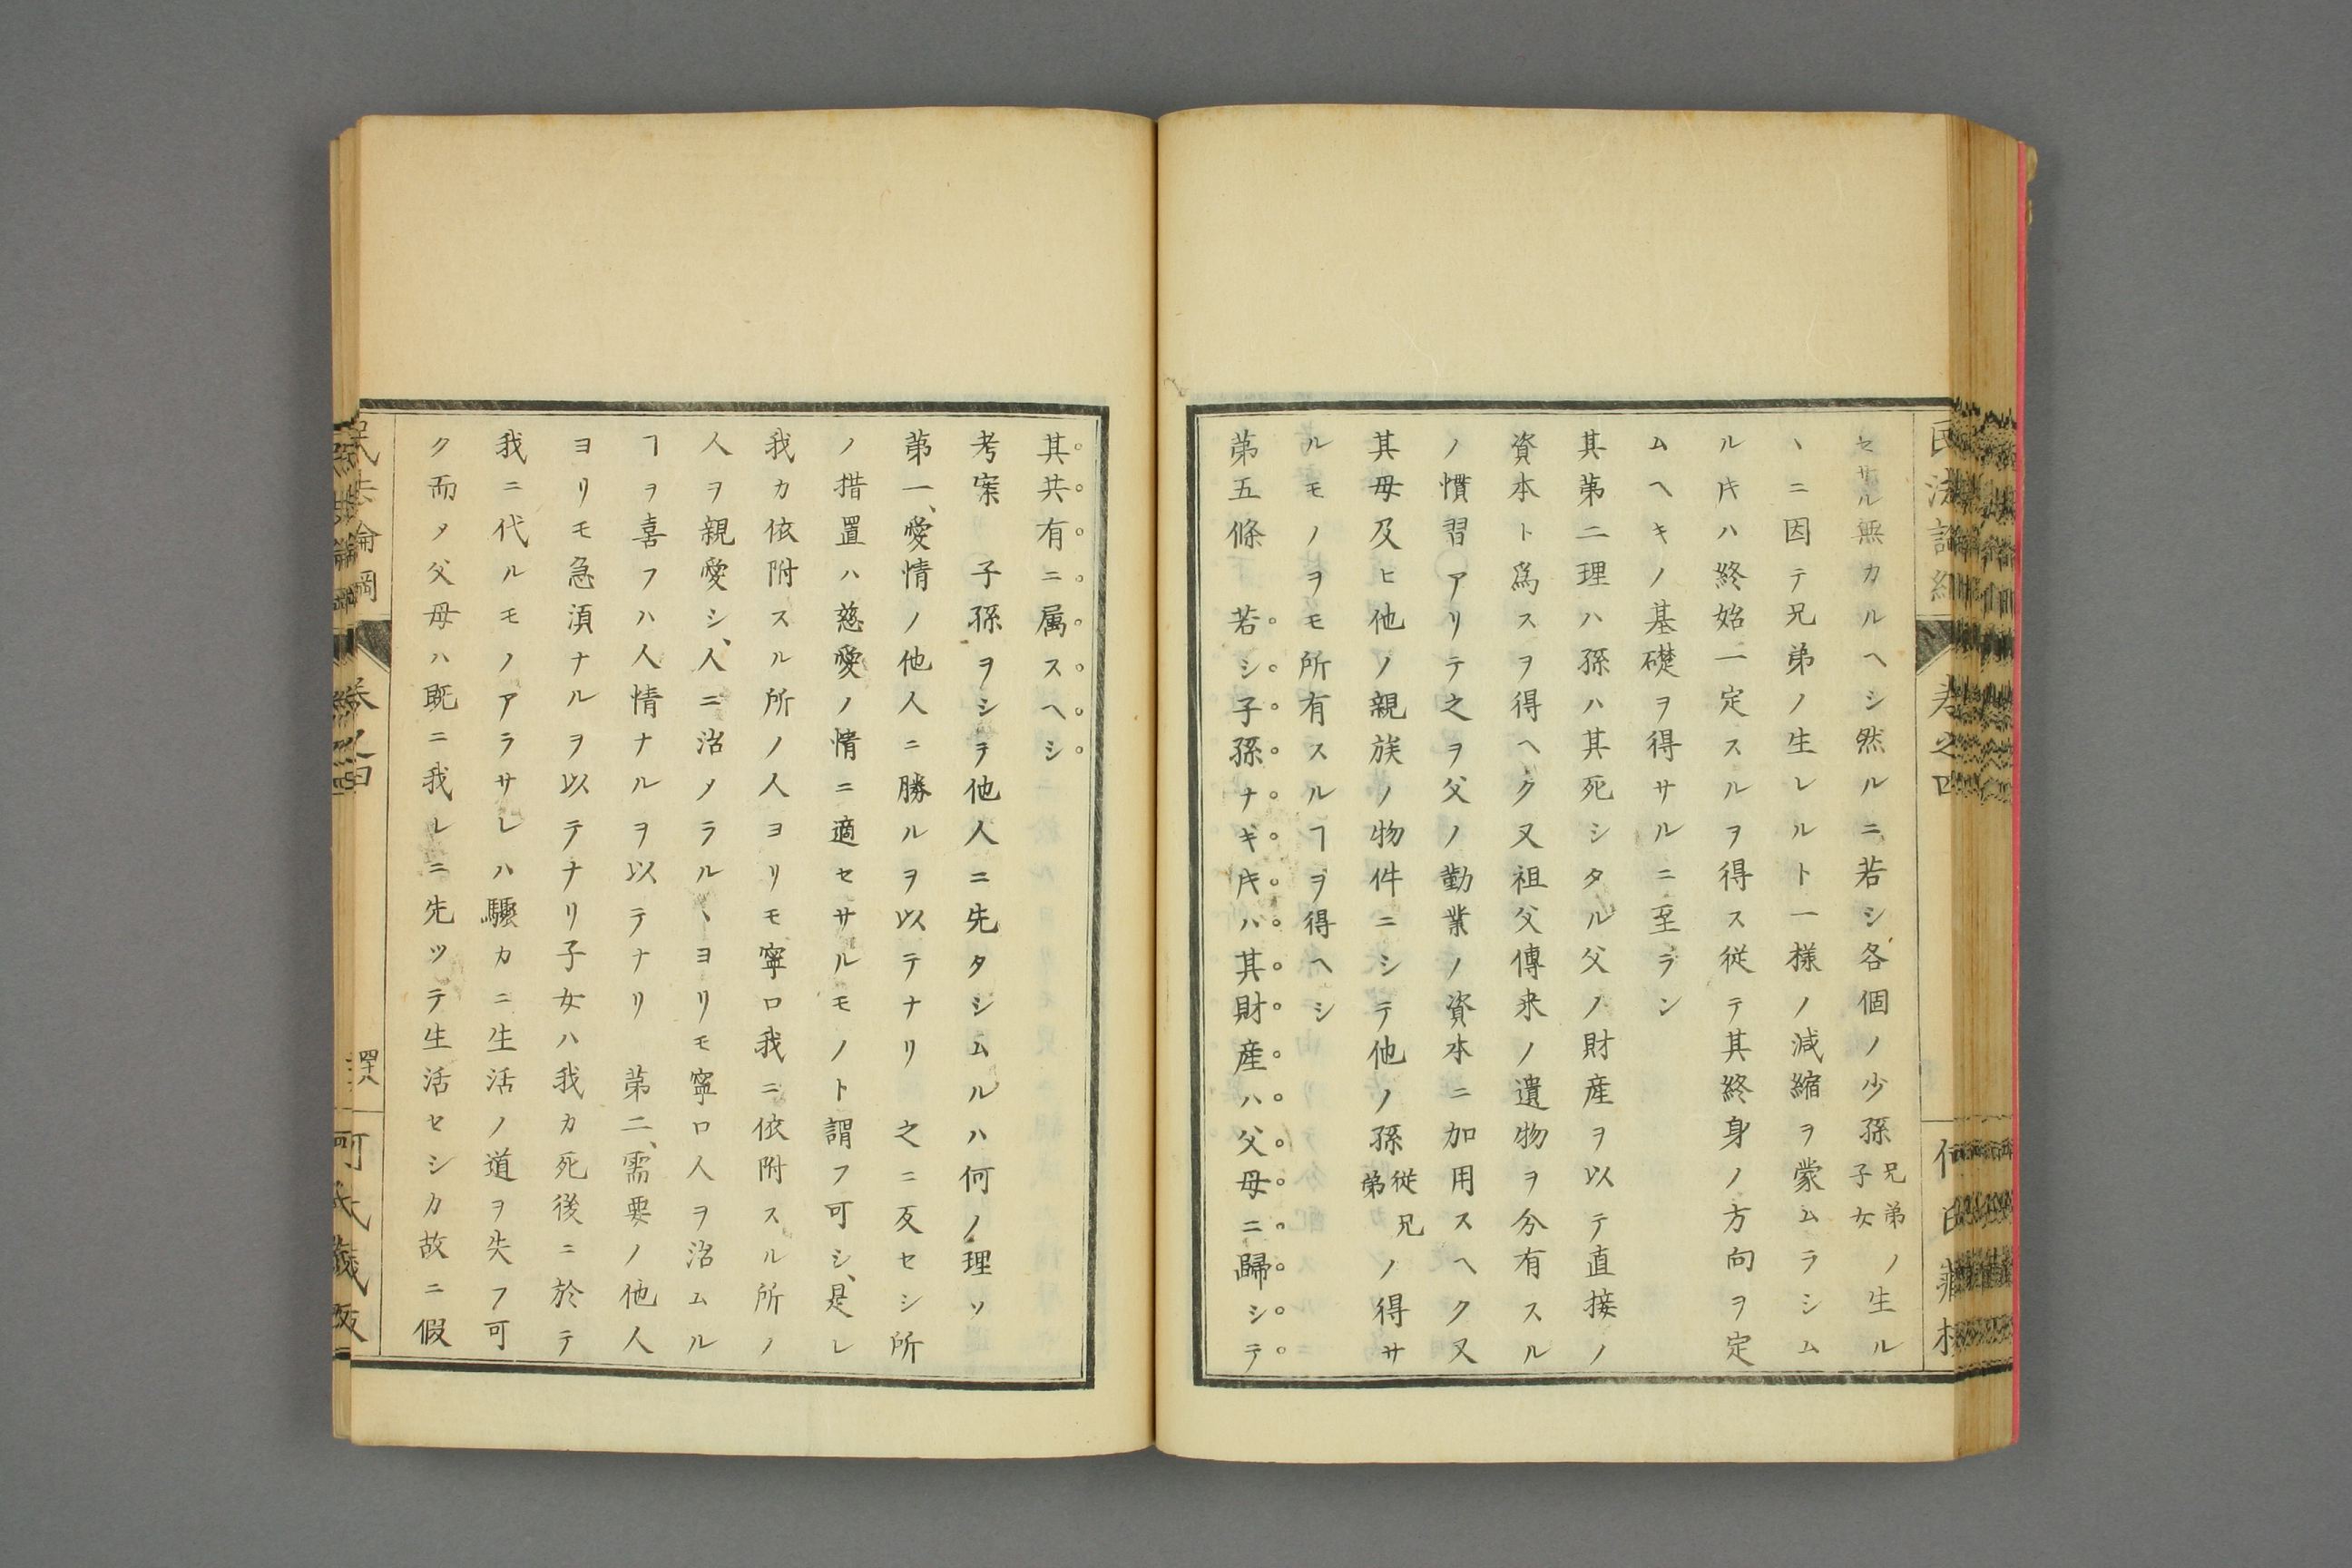 セサル無カルヘシ然ルニ若シ各個ノ少孫兄弟子女ノ生ル
ヽニ因テ兄弟ノ生レルト一樣ノ減縮ヲ蒙ムラシム
ル𪜈ハ終始一定スルヲ得ス従テ其終身ノ方向ヲ定
ムヘキノ基礎ヲ得サルニ至ラン
其第二理ハ孫ハ其死シタル父ノ財産ヲ以テ直接ノ
資本ト爲スヲ得ヘク又祖父傳来ノ遺物ヲ分有スル
ノ慣習アリテ之ヲ父ノ勤業ノ資本ニ加用スヘク又
其母及ヒ他ノ親族ノ物件ニシテ他ノ孫従兄弟ノ得サ
ルモノヲモ所有スルヿヲ得ヘシ
第五條 若シ子孫ナキ𪜈ハ其財産ハ父母ニ歸シテ
其共有ニ属スヘシ
考案 子孫ヲシテ他人ニ先タシムルハ何ノ理ソ
第一、愛情ノ他人ニ勝ルヲ以テナリ 之ニ反セシ所
ノ措置ハ慈愛ノ情ニ適セサルモノト謂フ可シ、是レ
我カ依附スル所ノ人ヨリモ寧ロ我ニ依附スル所ノ
人ヲ親愛シ、人ニ治メラルヽヨリモ寧ロ人ヲ治ムル
ヿヲ喜フハ人情ナルヲ以テナリ 第二、需要ノ他人
ヨリモ急湏ナルヲ以テナリ子女ハ我カ死後ニ於テ
我ニ代ルモノアラサレハ驟カニ生活ノ道ヲ失フ可
ク而メ父母ハ既ニ我レニ先ツテ生活セシカ故ニ假
民法論綱 卷之四 四十八 何氏藏版